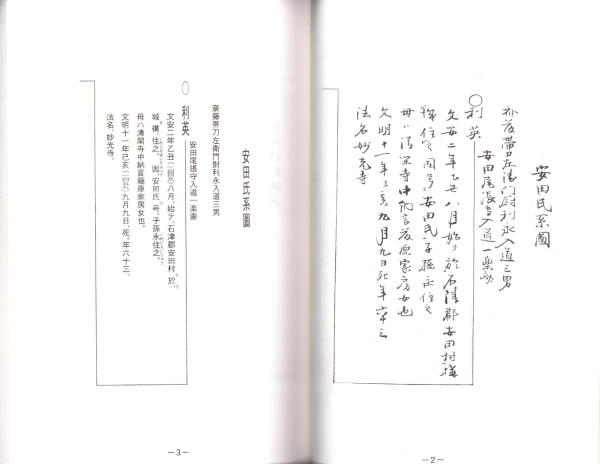 安田氏系圖
斎藤帯刀左衛門尉利永入道三男
安田尾張守入道一楽斎
利英
文安二年乙丑八月始テ於石津郡安田村構
城住之因号安田氏子孫永住之
母ハ清閑寺中納言藤原家房女也
文明十一年己亥九月九日死年六十三
法名妙光寺
−2−
安田氏系圖
斎藤帯刀左衛門尉利永入道三男
安田尾張守入道一楽斎
○利英
文安二年乙丑(一四四五)八月、始テ、石津郡安田村、於、
城、構、住之、因、安田氏、号。子孫永住之。
母ハ清閑寺中納言藤原家房女也。
文明十一年己亥(一四七九)九月九日、死、年六十三。
法名、妙光寺。
−3−